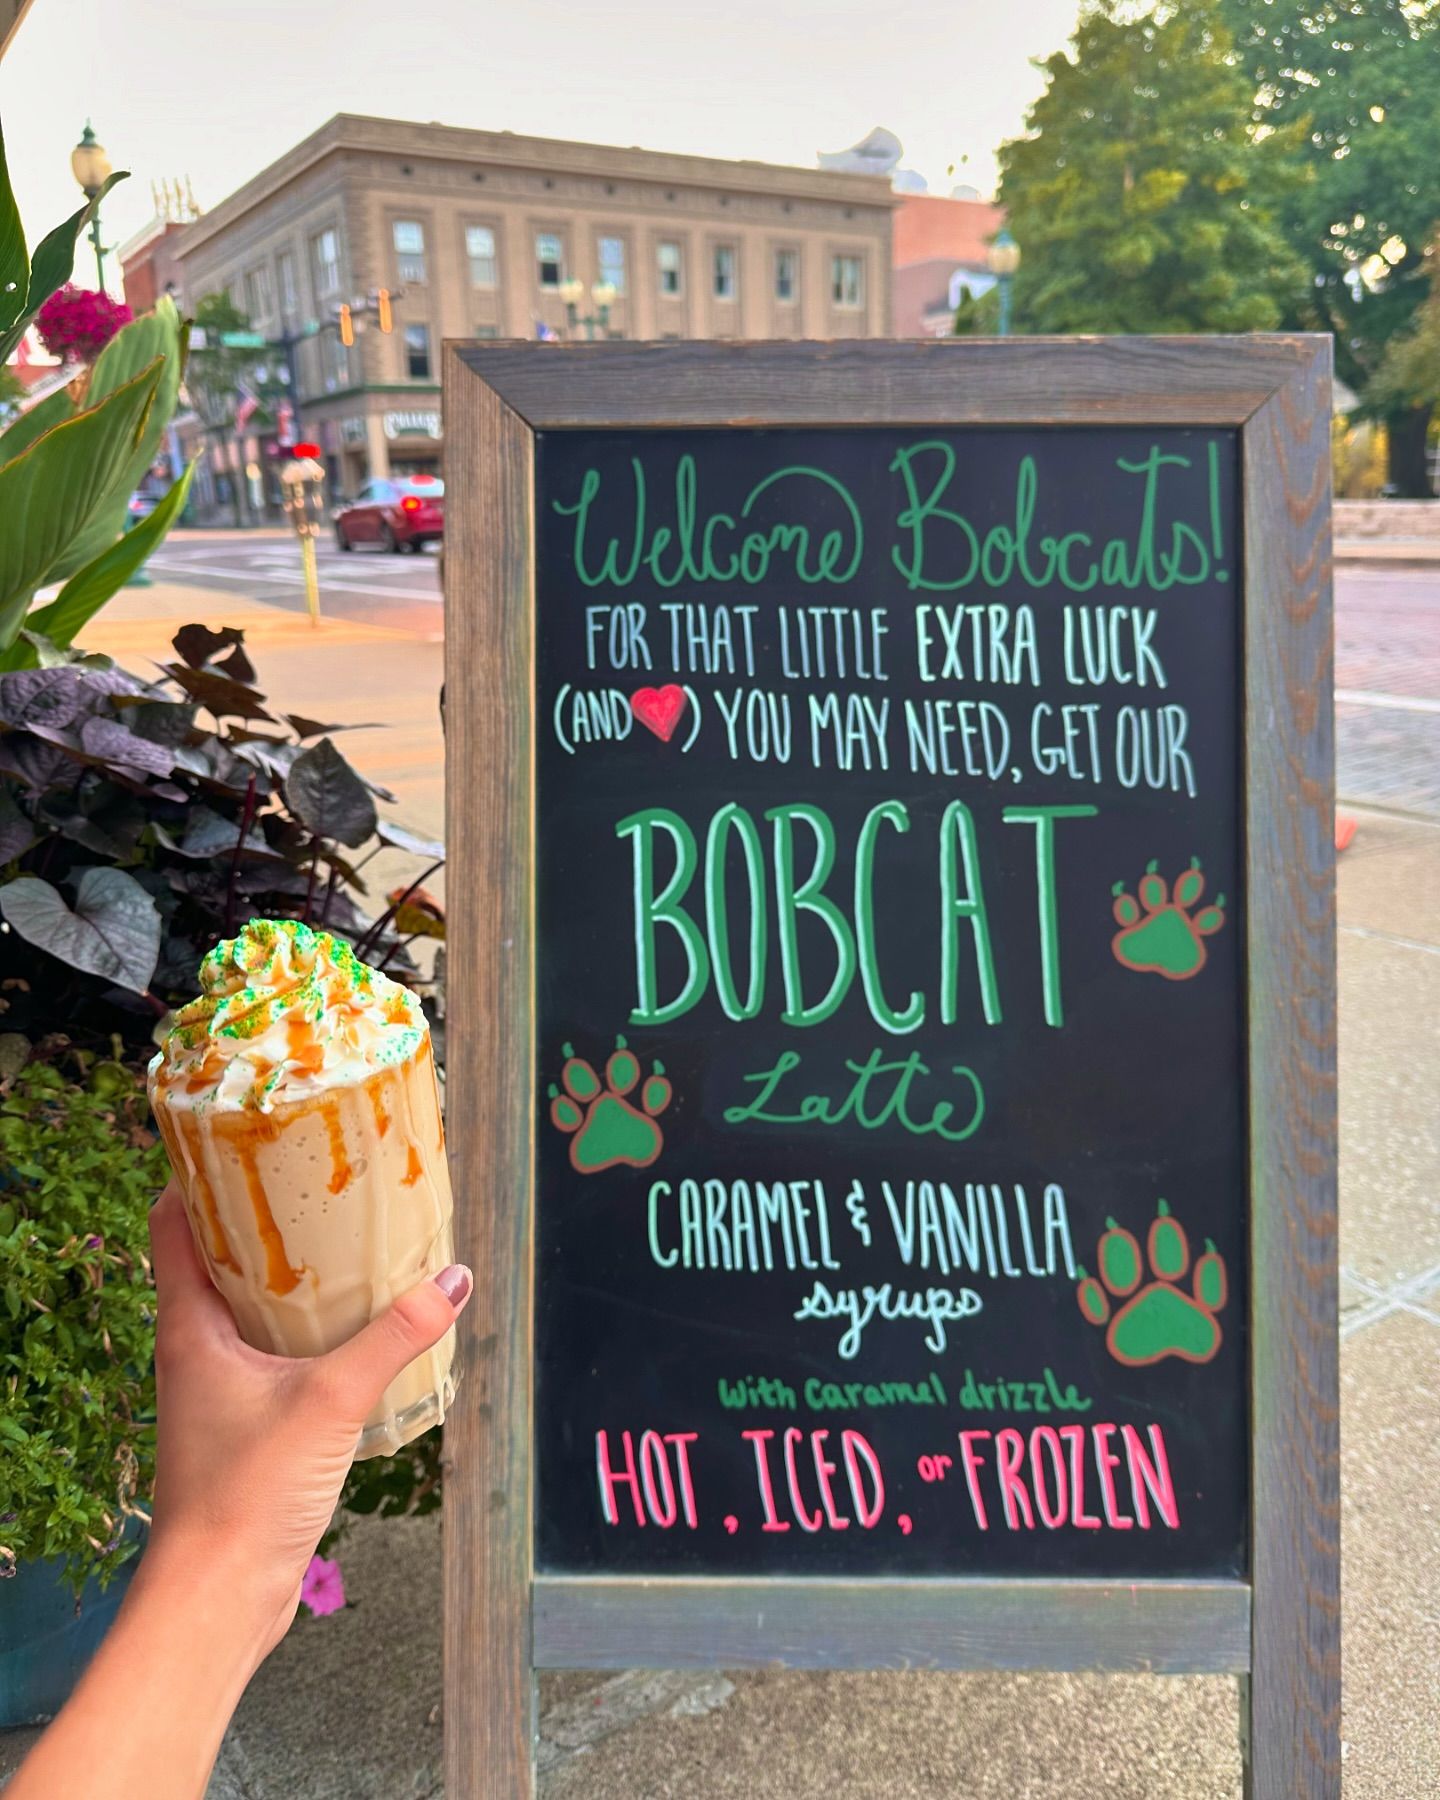 Welcome Bobcats!
FOR THAT LITTLE EXTRA LUCK
(AND ❤) YOU MAY NEED, GET OUR
BOBCAT
Latte
CARAMEL & VANILLA
syrups
with caramel drizzle
HOT, ICED, or FROZEN